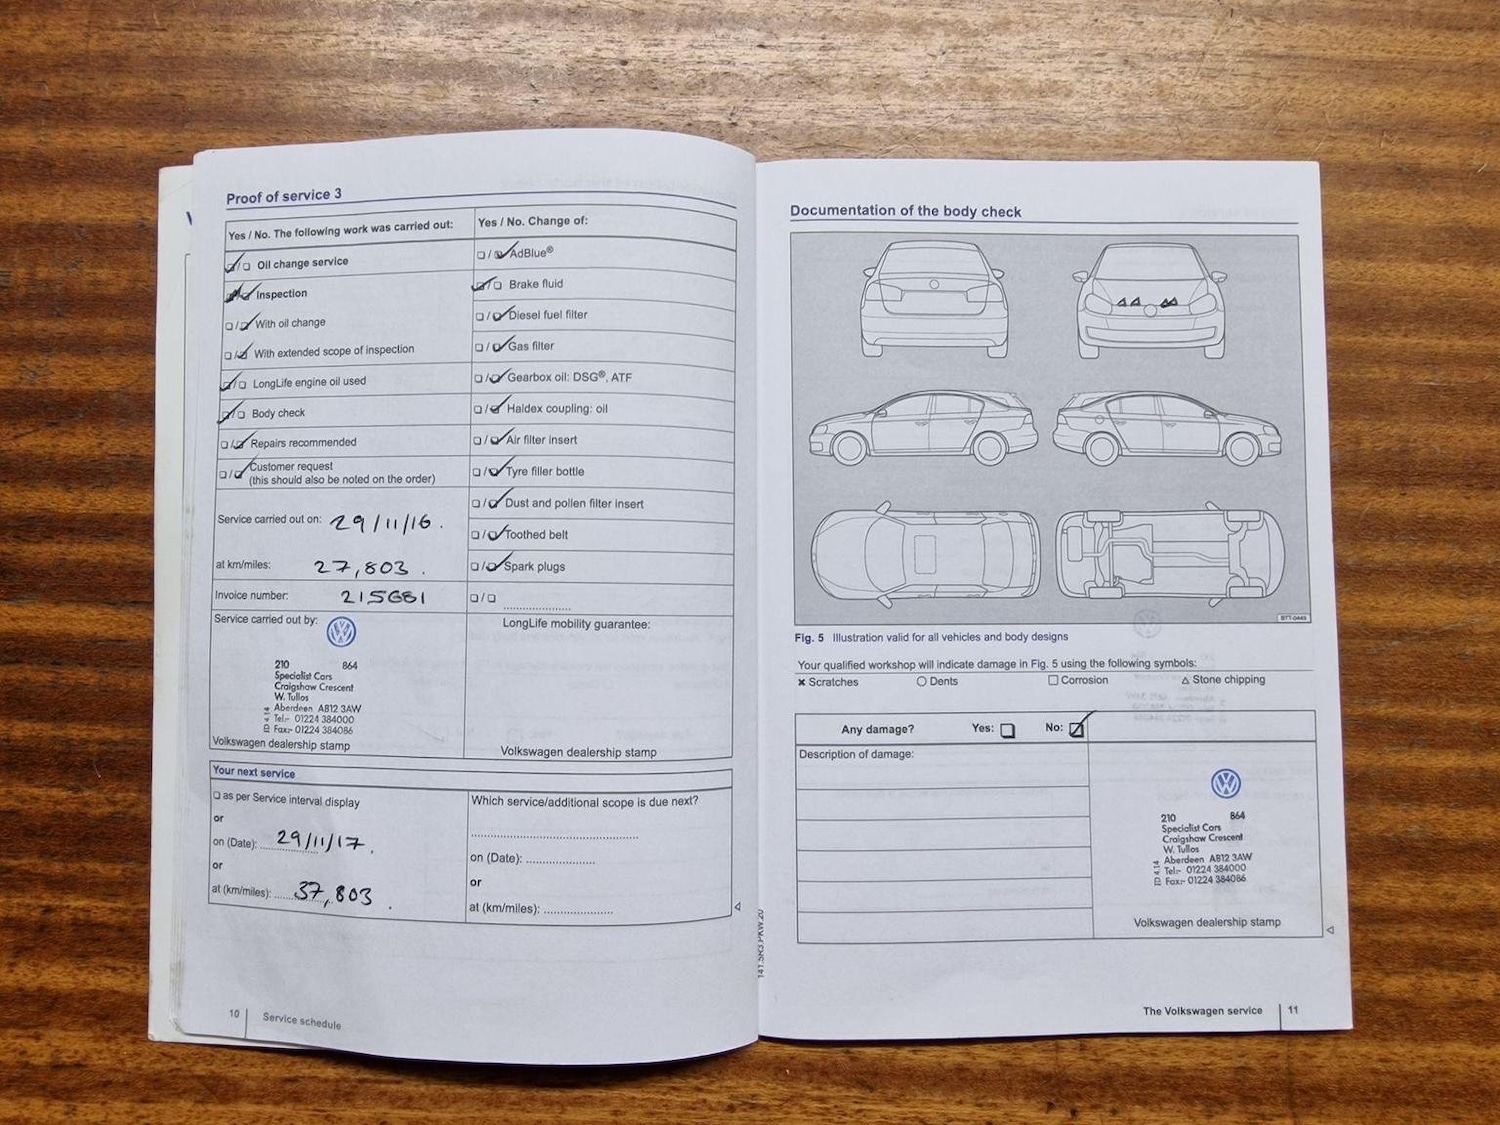 Proof of service 3
Yes / No. The following work was carried out:
Oil change service
Inspection
With oil change
With extended scope of inspection
LongLife engine oil used
Body check
Repairs recommended
Customer request
(this should also be noted on the order)
Service carried out on: 29/11/16.
at km/miles: 27,803.
Invoice number: 215681
Service carried out by:
210 864
Specialist Cars
Craigshaw Crescent
W. Tullos
Aberdeen AB12 3AW
Tel:- 01224 384000
Fax:- 01224 384086
Volkswagen dealership stamp
Yes / No. Change of:
AdBlue®
Brake fluid
Diesel fuel filter
Gas filter
Gearbox oil: DSG®, ATF
Haldex coupling: oil
Air filter insert
Tyre filler bottle
Dust and pollen filter insert
Toothed belt
Spark plugs
LongLife mobility guarantee:
Volkswagen dealership stamp
Your next service
as per Service interval display
or
on (Date): 29/11/17.
or
at (km/miles): 37,803.
Which service/additional scope is due next?
on (Date):
or
at (km/miles):
10 Service schedule
Documentation of the body check
Fig. 5 Illustration valid for all vehicles and body designs
Your qualified workshop will indicate damage in Fig. 5 using the following symbols:
Scratches Dents Corrosion Stone chipping
Any damage? Yes: No:
Description of damage:
210 864
Specialist Cars
Craigshaw Crescent
W. Tullos
Aberdeen AB12 3AW
Tel:- 01224 384000
Fax:- 01224 384086
Volkswagen dealership stamp
The Volkswagen service 11